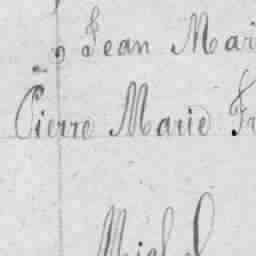 Jean Mari
Pierre Marie Fr
Michel